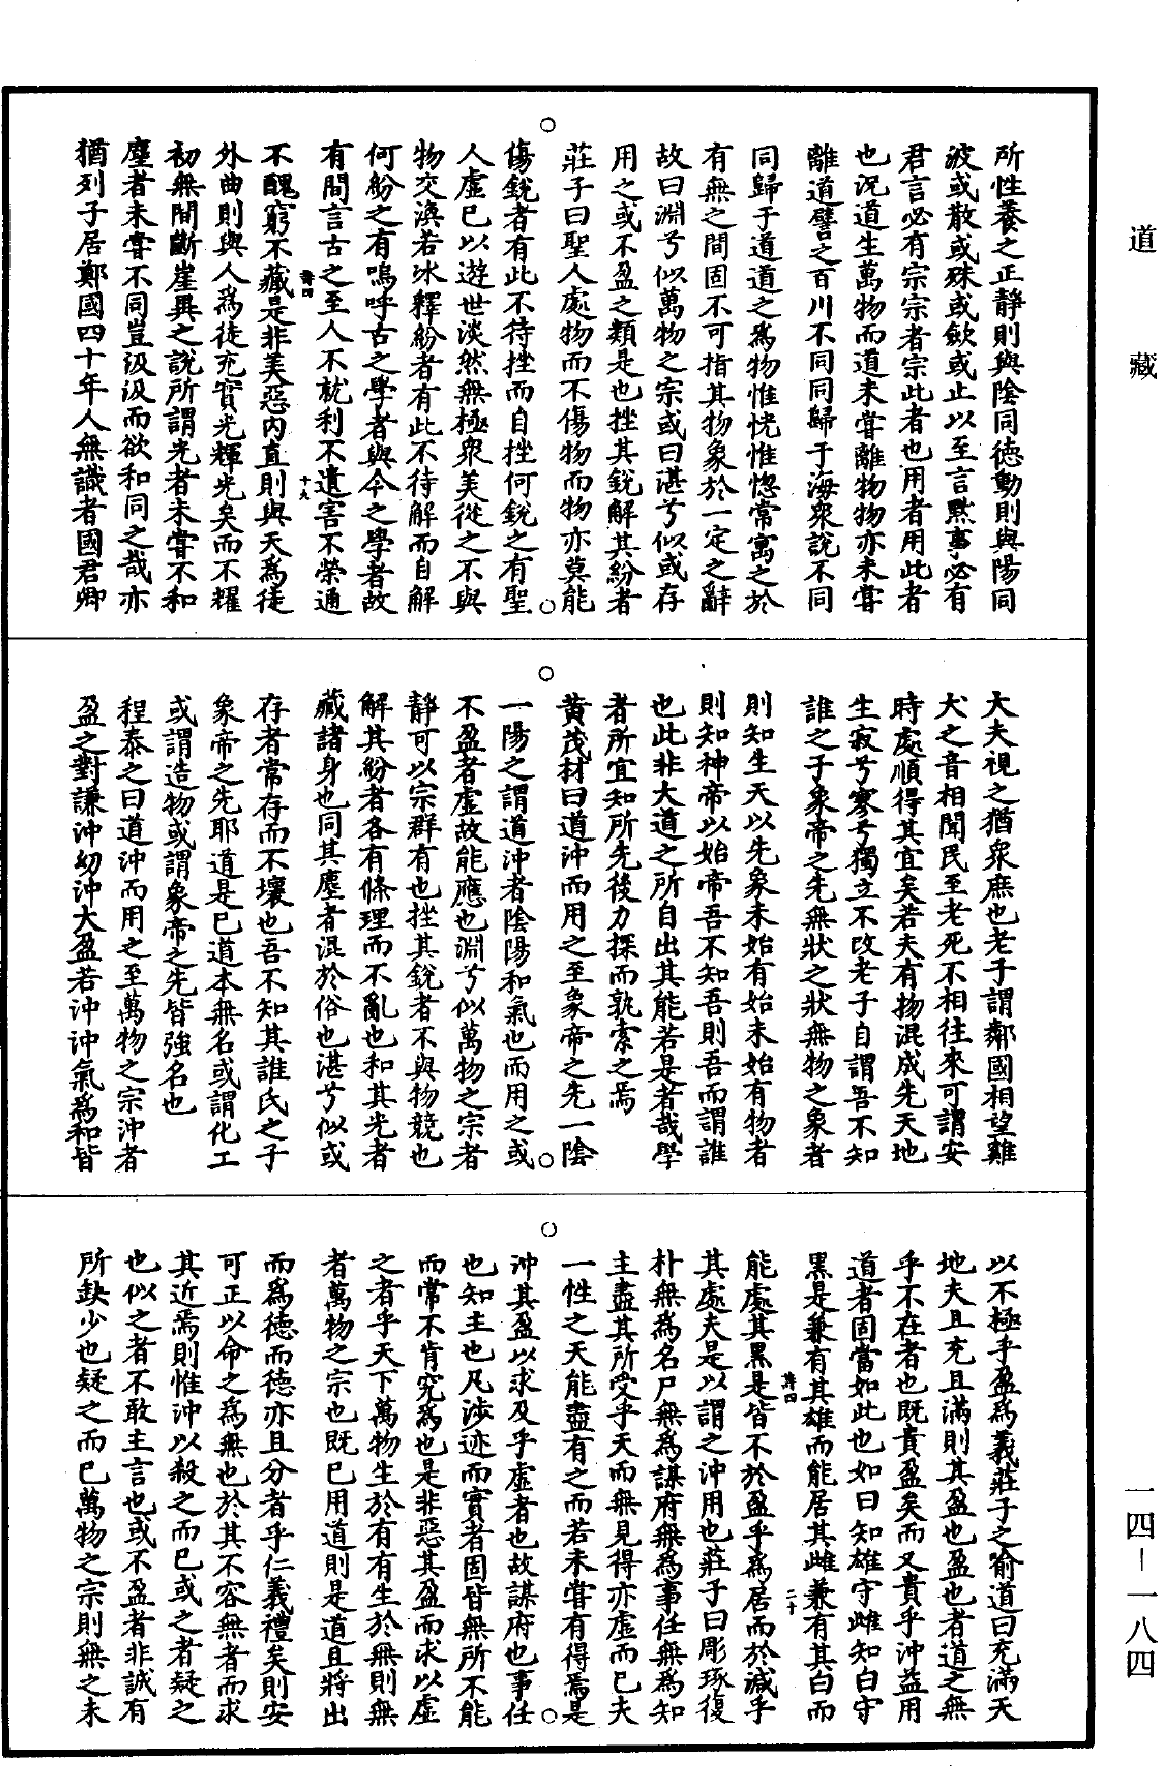 道藏
所性養之正靜則與陰同德動則與陽同
波或散或殊或斂或止以至言默事必有
君言必有宗宗者宗此者也用者用此者
也況道生萬物而道未嘗離物物亦未嘗
離道譬之百川不同同歸于海衆說不同
同歸于道道之爲物惟恍惟惚常寓之於
有無之間固不可指其物象於一定之辭
故曰淵兮似萬物之宗或曰湛兮似或存
用之或不盈之類是也挫其銳解其紛者
莊子曰聖人處物而不傷物而物亦莫能
傷銳者有此不待挫而自挫何銳之有聖
人虛己以遊世淡然無極衆美從之不與
物交渙若冰釋紛者有此不待解而自解
何紛之有嗚呼古之學者與今之學者故
有間言古之至人不就利不遺害不榮通
壽四
十九
不醜窮不藏是非美惡內直則與天爲徒
外曲則與人爲徒充實光輝光矣而不耀
初無間斷崖異之說所謂光者未嘗不和
塵者未嘗不同豈汲汲而欲和同之哉亦
猶列子居鄭國四十年人無識者國君卿
大夫視之猶衆庶也老子謂鄰國相望雞
犬之音相聞民至老死不相往來可謂安
時處順得其宜矣若夫有物混成先天地
生寂兮寥兮獨立不改老子自謂吾不知
誰之子象帝之先無狀之狀無物之象者
則知生天以先象未始有始未始有物者
則知神帝以始帝吾不知吾則吾而謂誰
也此非大道之所自出其能若是者哉學
者所宜知所先後力探而孰索之焉
黃茂材曰道沖而用之至象帝之先一陰
一陽之謂道沖者陰陽和氣也而用之或
不盈者虛故能應也淵兮似萬物之宗者
靜可以宗群有也挫其銳者不與物競也
解其紛者各有條理而不亂也和其光者
藏諸身也同其塵者混於俗也湛兮似或
存者常存而不壞也吾不知其誰氏之子
象帝之先耶道是已道本無名或謂化工
或謂造物或謂象帝之先皆強名也
程泰之曰道沖而用之至萬物之宗沖者
盈之對謙沖幼沖大盈若沖沖氣爲和皆
以不極乎盈爲義莊子之喻道曰充滿天
地夫且充且滿則其盈也盈也者道之無
乎不在者也既貴盈矣而又貴乎沖益用
道者固當如此也如曰知雄守雌知白守
黑是兼有其雄而能居其雌兼有其白而
壽四
二十
能處其黑是皆不於盈乎爲居而於減乎
其處夫是以謂之沖用也莊子曰彫琢復
朴無爲名尸無爲謀府無爲事任無爲知
主盡其所受乎天而無見得亦虛而已夫
一性之天能盡有之而若未嘗有得焉是
沖其盈以求及乎虛者也故謀府也事任
也知主也凡涉迹而實者固皆無所不能
而常不肯究爲也是非惡其盈而求以虛
之者乎天下萬物生於有有生於無則無
者萬物之宗也既已用道則是道且將出
而爲德而德亦且分者乎仁義禮矣則安
可正以命之爲無也於其不容無者而求
其近焉則惟沖以殺之而已或之者疑之
也似之者不敢主言也或不盈者非誠有
所缺少也疑之而已萬物之宗則無之未
一四—一八四